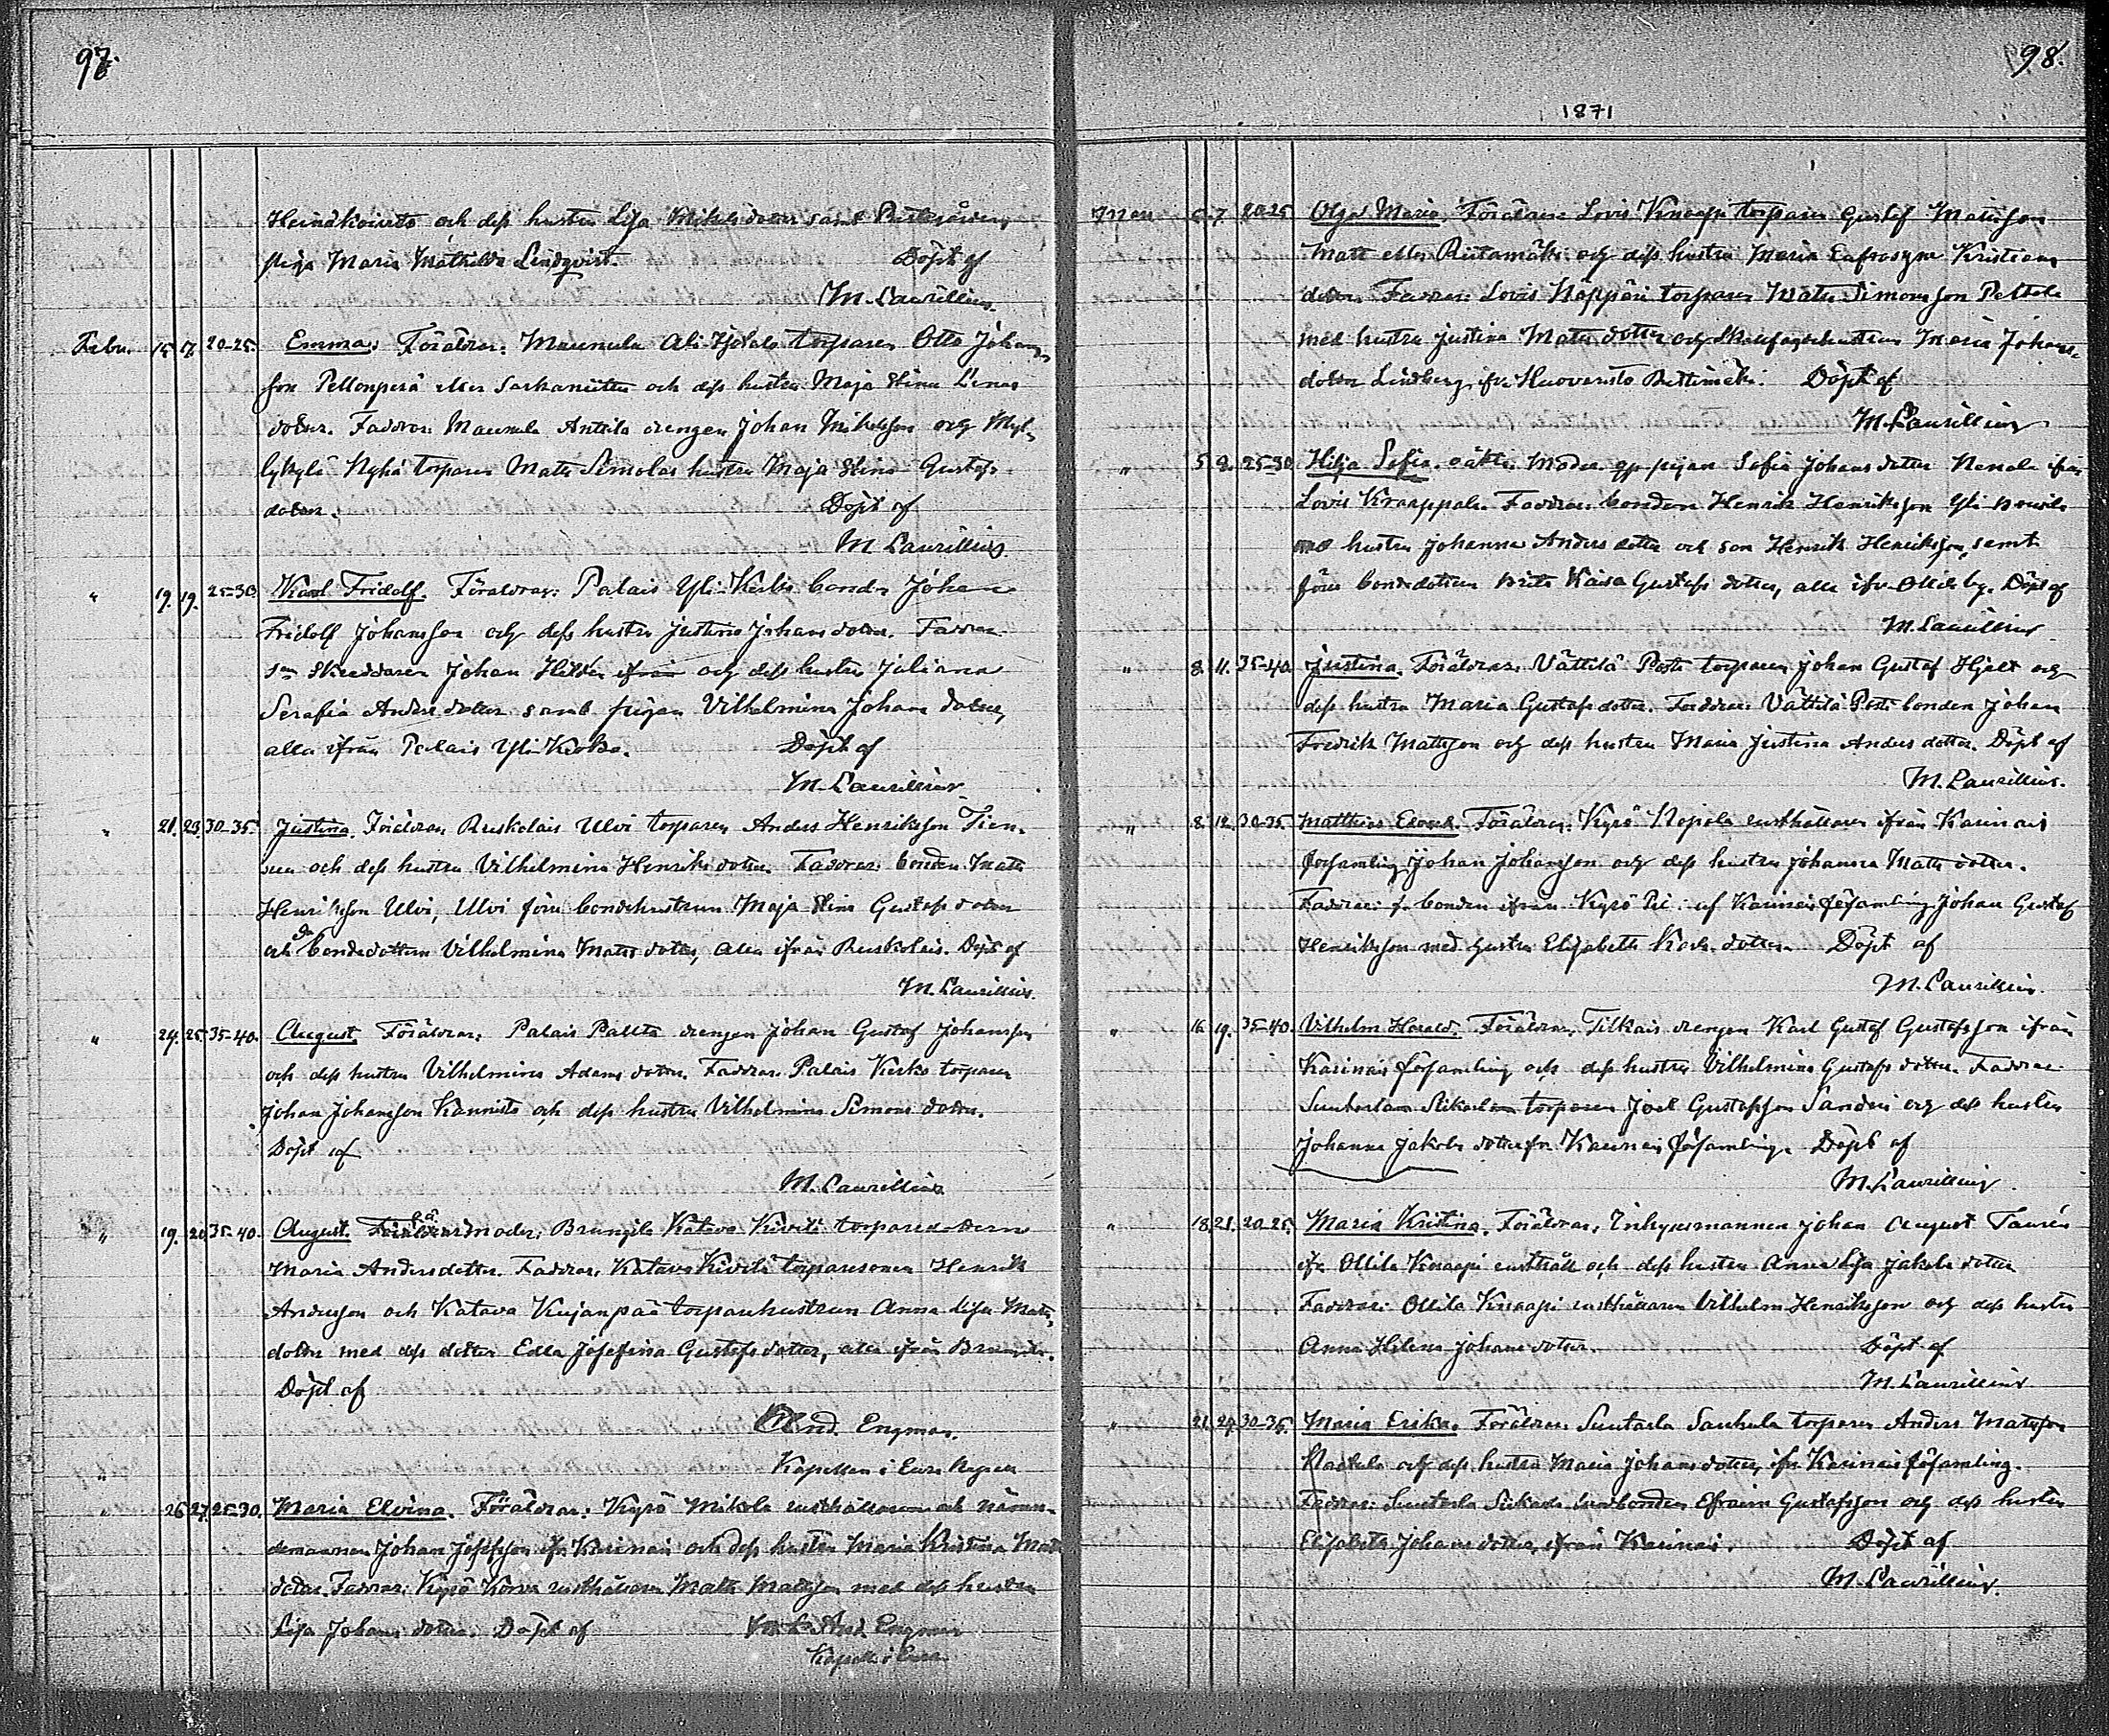 97.
Heinäkoivisto och dess hustru Lisa Mikelsdotter samt
piga Maria Mathilda Lindqvist. Döpt af
M. Laurillius.
Febr. 15. 17. 20-25. Emma. Föräldrar: Maunula Ali-Hjelala torparen Otto Johans
son Pellonperä eller och dess hustru Maja Stina Lenas
dotter. Faddrar: Maunula Anttila drengen Johan Mikelsson och Myl,
lykylä torparen Matts Simolas hustru Maja Stina Gustafs
dotter. Döpt af
M Laurillius
" 19. 19. 25-30. Karl Fridolf. Föräldrar: Palais Yli-Kerko bonden Johan
Fridolf Johansson och dess hustru Justina Johansdotter. Faddrar:
Skreddaren Johan Heldén ifrån och dess hustru Juliana
Serafia Andersdotter samt pigan Vilhelmina Johansdotter,
alla ifrån Palais Yli-Kerko. Döpt af
M. Laurillius
" 21. 23. 30-35. Justina. Föräldrar: Ruskolais Ulvi torparen Anders Henriksson Tien,
suu och dess hustru Vilhelmina Henriksdotter. Faddrar: bonden Matts
Henriksson Ulvi, Ulvi förra bondehustrun Maja Stina Gustafsdotter
och bondedottern Vilhelmina Mattsdotter, alla ifrån Ruskolais. Döpt af
M. Laurillius.
" 24. 25. 35-40. August. Föräldrar: Palais Pallta drengen Johan Gustaf Johansson
och dess hustru Vilhelmina Adamsdotter. Faddrar: Palais Kerko torparen
Johan Johansson Kannisto och dess hustru Vilhelmina Simonsdotter.
Döpt af
M. Laurillius
" 19. 20. 35-40. August. oä moder: Brungila Katava Kivelä torparedottern
Maria Andersdotter. Faddrar: Katava Kivelä torparesonen Henrik
Andersson och Katava Kujanpää torparehustrun Anna Lisa Matts,
dotter med dess dotter Edla Josefina Gustafsdotter, alla ifrån
Döpt af
And. Engman.
Kapellan i Eura
" 26. 27. 25-30. Maria Elvina. Föräldrar: Kyrö Mikola rusthållaren och nämn-
demannen Johan Josefsson ifr. Karinais och dess hustru Maria Kristina Matts
dotter. Faddrar: Kyrö Korva rusthållaren Matts Mattsson med dess hustru
Lisa Johansdotter. Döpt af And. Engman
Kapell. i Eura
98.
1871
Mars 6. 7. 20-25 Olga Maria. Föräldrar: Lovis Knaapi torparen Gustaf Mattsson
Matt eller Riitamäki och dess hustru Maria Eufrosyne Kristians
dotter. Faddrar: Lovis Näppäri torparen Matts Simonsson Peltola
med hustru Justina Mattsdotter och hustrun Maria Johans,
dotter Lindberg ifr. Huovaristo Döpt af
M. Laurillius
" 5. 9. 25-30 Hilja Sofia. oäkta. Moder: pigan Sofia Johansdotter ifrån
Lovis Knaappala. Faddrar: bonden Henrik Henriksson Yli
med hustru Johanna Andersdotter och son Henrik Henriksson, samt
förra bondedottern Brita Kaisa Gustafsdotter, alla ifr. Ollila by. Döpt af
M. Laurillius
" 8. 11. 35-40. Justina. Föräldrar: Vättilä Posti torparen Johan Gustaf Hjelt och
dess hustru Maria Gustafsdotter. Faddrar: Vättilä Posti bonden Johan
Fredrik Mattsson och dess hustru Maria Justina Andersdotter. Döpt af
M. Laurillius.
" 8. 12. 30-35. Matthias Edvard. Föräldrar: Kyrö Nopola rusthållaren ifrån Karinais
församling Johan Johansson och dess hustru Johanna Mattsdotter.
Faddrar: f. bonden ifrån Kyrö af Karinais församling Johan Gustaf
Henriksson med hustru Elisabeth Karlsdotter. Döpt af
M. Laurillius.
" 16. 19. 35-40. Vilhelm Harald. Föräldrar: Tilkais drengen Karl Gustaf Gustafsson ifrån
Karinais församling och dess hustru Vilhelmina Gustafsdotter. Faddrar:
Suutarla torparen Joel Gustafsson Sandin och dess hustru
Johanna Jakobsdotter fr. Karinais församling. Döpt af
M. Laurillius
" 18. 21. 20-25. Maria Kristina. Föräldrar: Inhysesmannen Johan August Taurén
ifr. Ollila Knaapi rusthåll och dess hustru Anna Lisa Jakobsdotter
Faddrar: Ollila Knaapi rusthållaren Vilhelm Henriksson och dess hustru
Anna Helena Johansdotter. Döpt af
M. Laurillius
" 21. 24. 30-35. Maria Erika. Föräldrar: Suutarla Sauhula torparen Anders Mattsson
och dess hustru Maria Johansdotter, ifr. Karinais församling.
Faddrar: Suutarla landbonden Efraim Gustafsson och dess hustru
Elisabeth Johansdotter, ifrån Karinais. Döpt af
M. Laurillius.